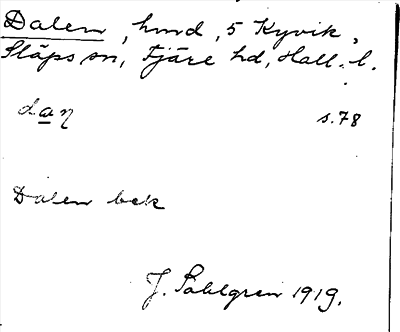 Dalen, hmd, 5 Kyvik,
Släps sn, Fjäre hd, Hall. l.
daŋ s. 78
Dalen bek
J. Sahlgren 1919.